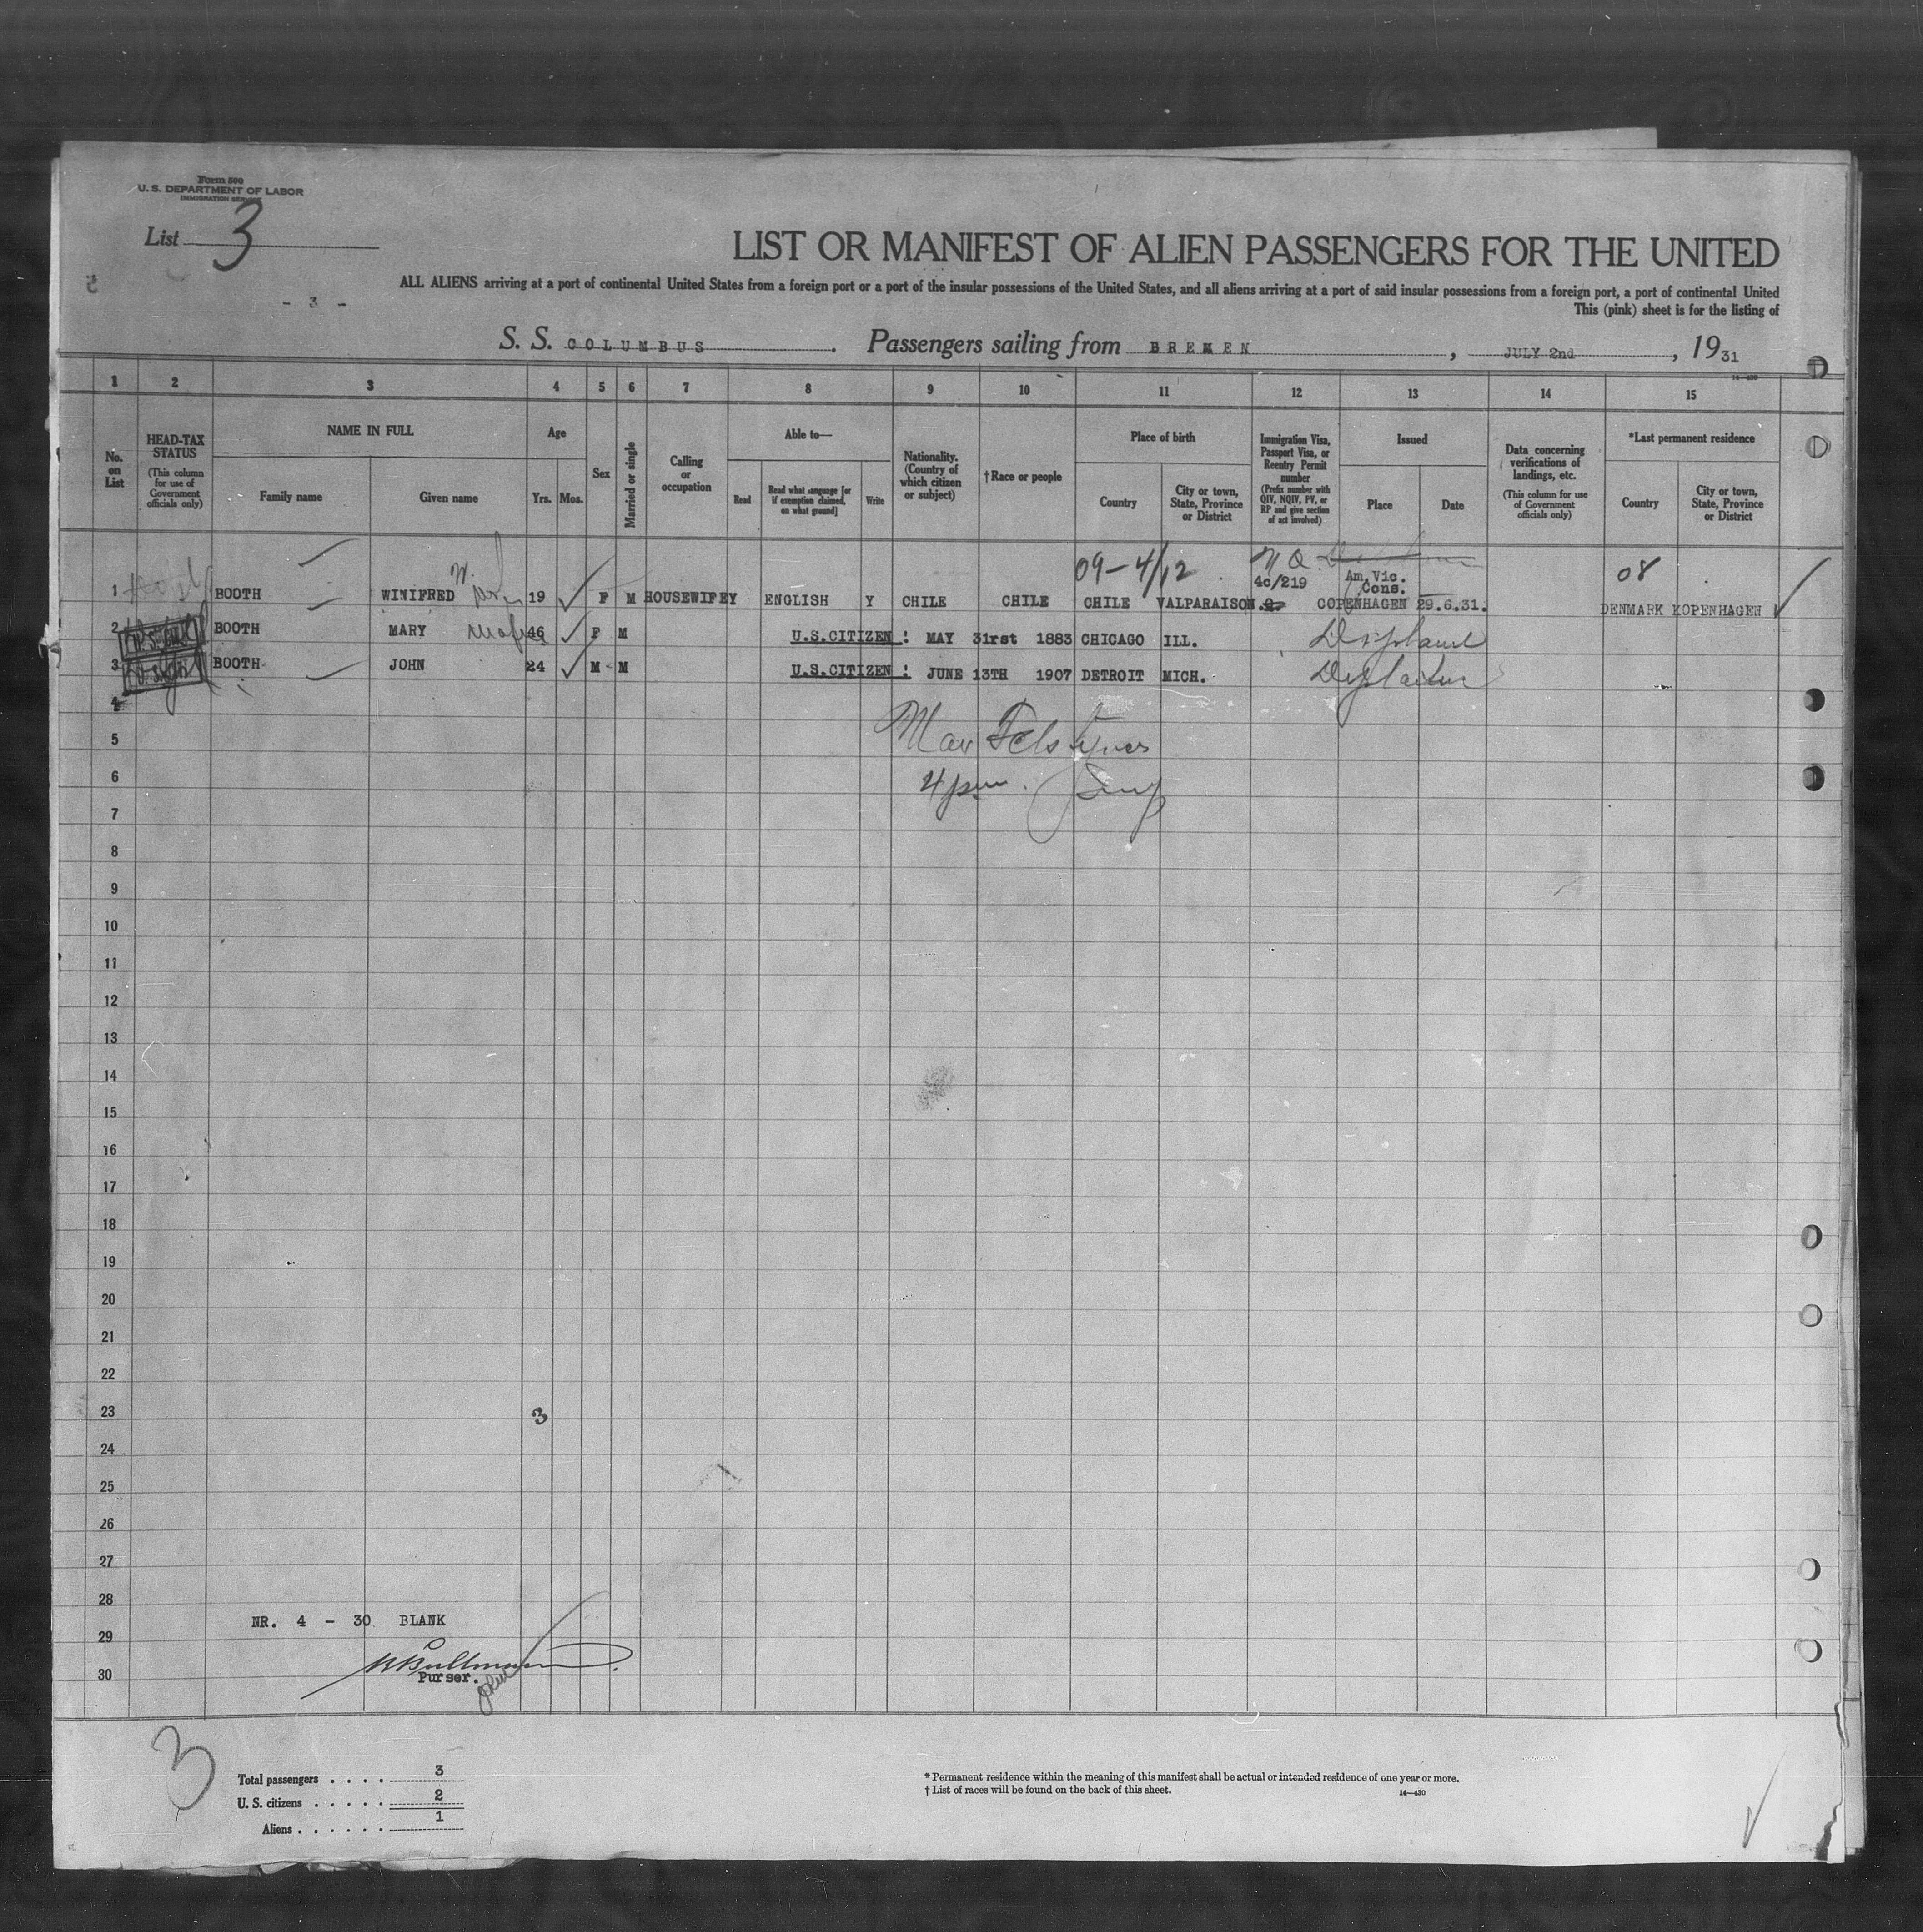 Form 500
U. S. DEPARTMENT OF LABOR
IMMIGRATION SERVICE
List 3
LIST OR MANIFEST OF ALIEN PASSENGERS FOR THE UNITED
ALL ALIENS arriving at a port of continental United States from a foreign port or a port of the insular possessions of the United States, and all aliens arriving at a port of said insular possessions from a foreign port, a port of continental United
- 3 -
This (pink) sheet is for the listing of
S. S. COLUMBUS. Passengers sailing from BREMEN, JULY 2nd, 1931
14-430
1 2 3 4 5 6 7 8 9 10 11 12 13 14 15
No. on List
HEAD-TAX STATUS (This column for use of Government officials only)
NAME IN FULL
Family name
Given name
Age
Yrs. Mos.
Sex
Married or single
Calling or occupation
Able to—
Read
Read what language [or if exemption claimed, on what ground]
Write
Nationality. (Country of which citizen or subject)
†Race or people
Place of birth
Country
City or town, State, Province or District
Immigration Visa, Passport Visa, or Reentry Permit number (Prefix number with QIV, NQIV, PV, or RP and give section of act involved)
Issued
Place
Date
Data concerning verifications of landings, etc. (This column for use of Government officials only)
*Last permanent residence
Country
City or town, State, Province or District
09-4/12 08
4c/219 Am. Vic. Cons.
1 BOOTH WINIFRED W. 19 F M HOUSEWIFE Y ENGLISH Y CHILE CHILE CHILE VALPARAISO COPENHAGEN 29.6.31. DENMARK KOPENHAGEN
2 BOOTH MARY 46 F M U.S.CITIZEN: MAY 31rst 1883 CHICAGO ILL.
3 BOOTH JOHN 24 M M U.S.CITIZEN: JUNE 13TH 1907 DETROIT MICH.
4
5
6 4 pm.
7
8
9
10
11
12
13
14
15
16
17
18
19
20
21
22
23 3
24
25
26
27
28
NR. 4 - 30 BLANK
29
30 Purser.
3
Total passengers . . . . 3
U. S. citizens . . . . . 2
Aliens . . . . . . 1
* Permanent residence within the meaning of this manifest shall be actual or intended residence of one year or more.
† List of races will be found on the back of this sheet. 14—430